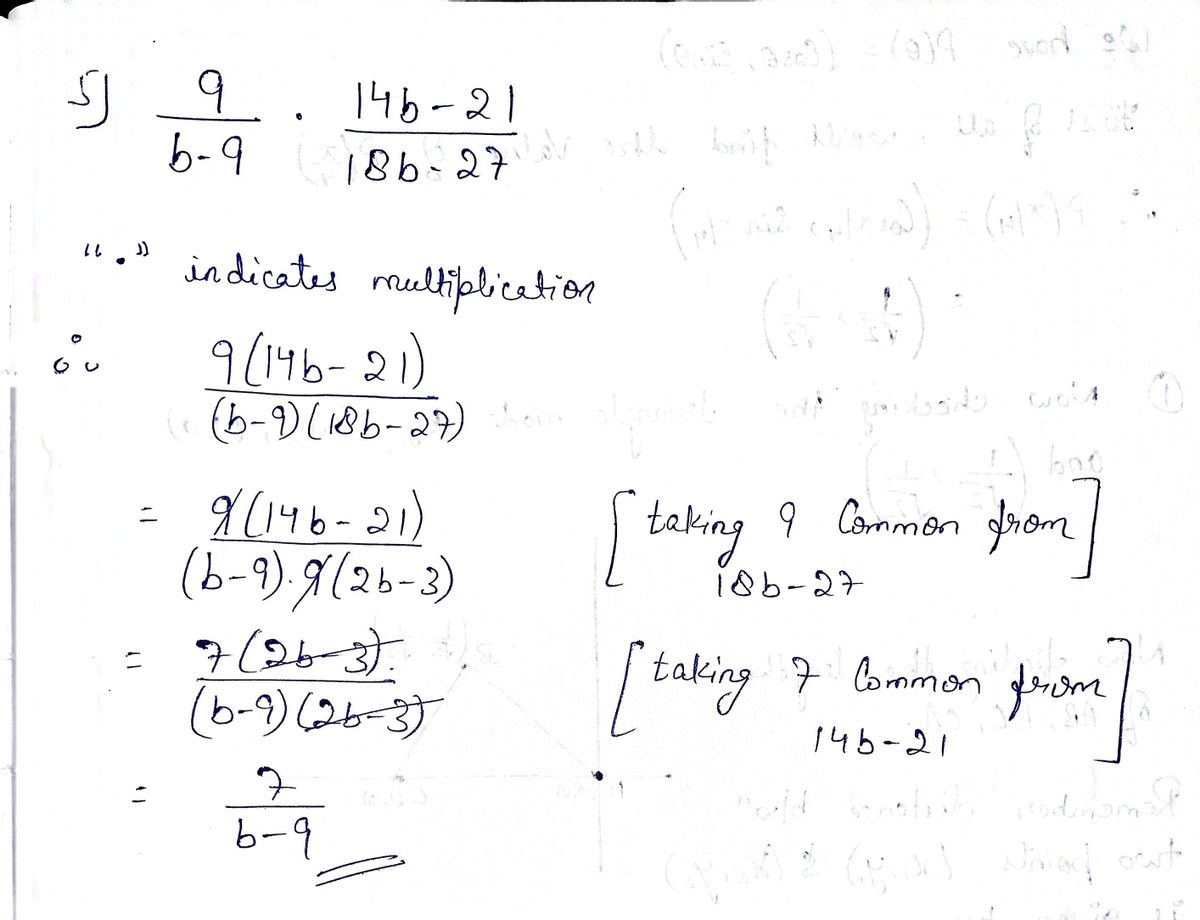 5) 9/(b-9) . (14b-21)/(18b-27)
"." indicates multiplication
∴ 9(14b-21)/(b-9)(18b-27)
= 9(14b-21)/(b-9).9(2b-3) [taking 9 Common from 18b-27]
= 7(2b-3)/(b-9)(2b-3) [taking 7 Common from 14b-21]
= 7/(b-9)